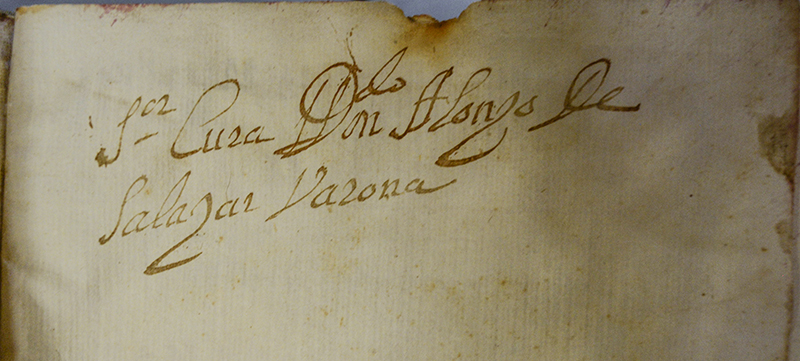 Sor Cura Don Alonzo De
Salazar Varona